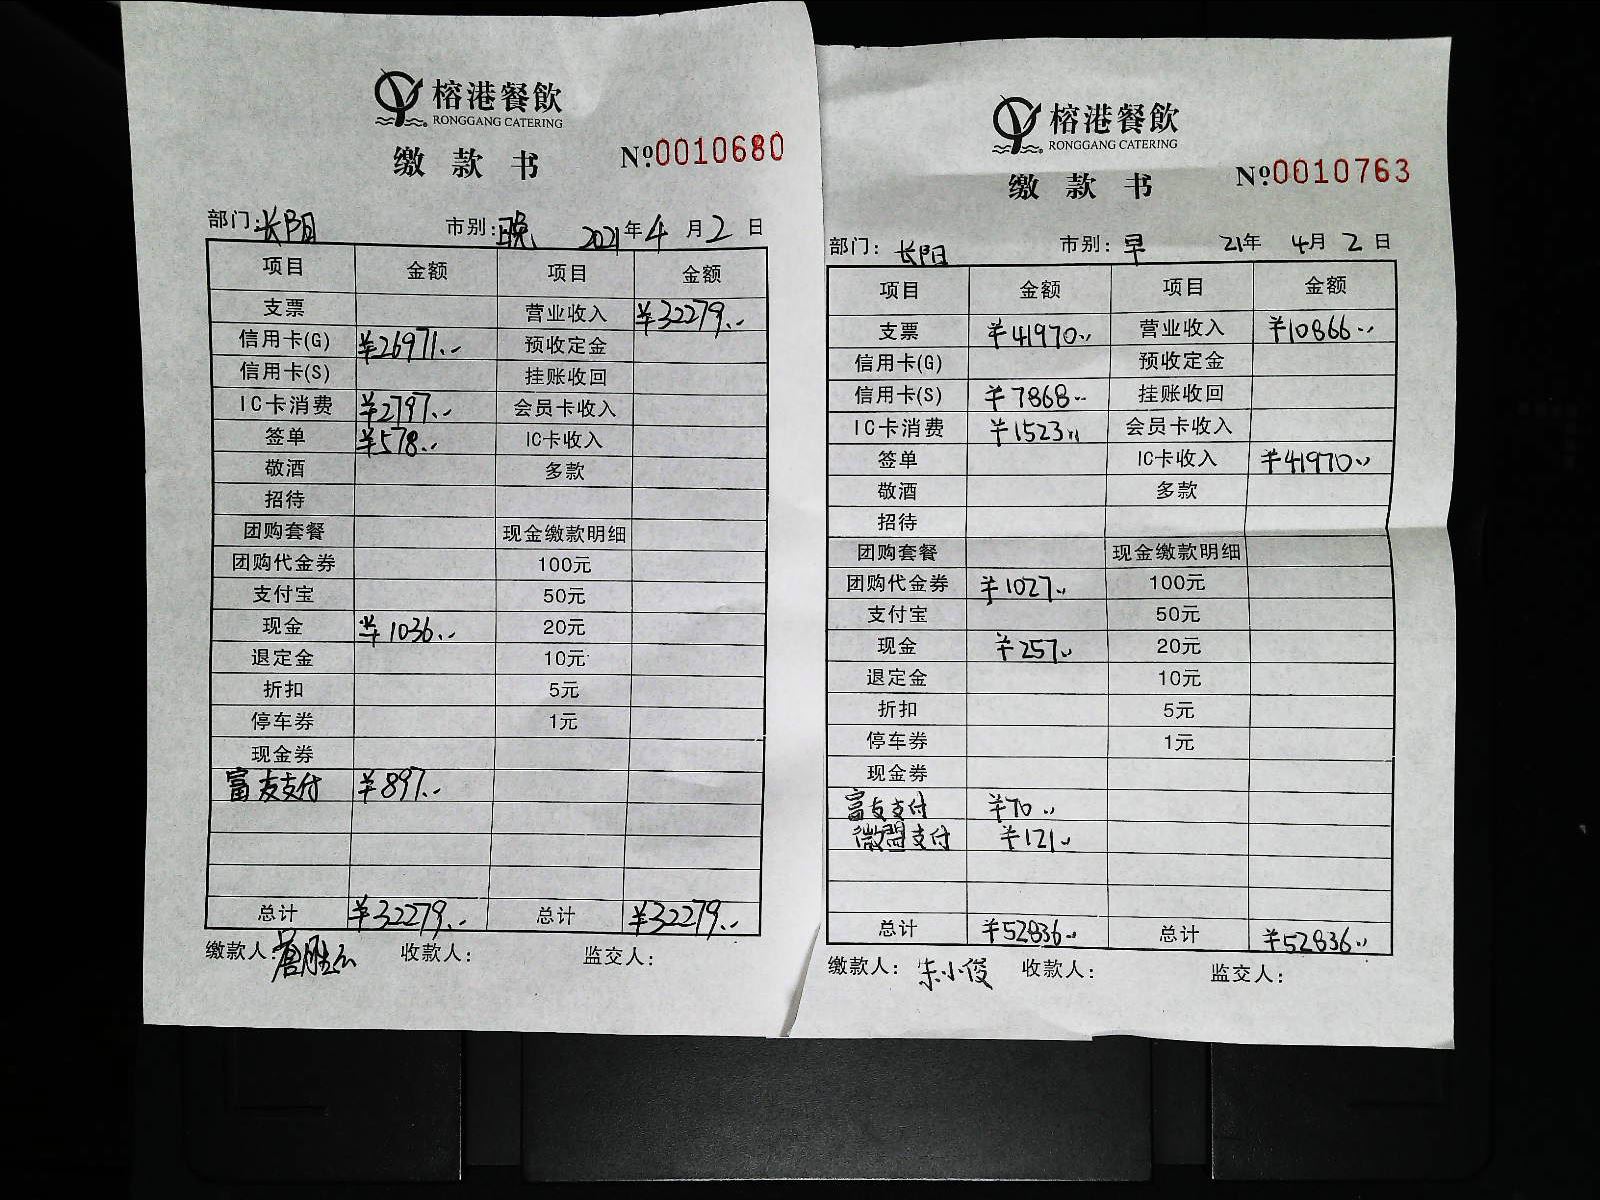 榕港餐飲
RONGGANG CATERING
缴款书 Nº0010680
部门:长阳 市别:晚 2021年4月2日
项目 金额 项目 金额
支票 营业收入 ¥32279..
信用卡(G) ¥26971.. 预收定金
信用卡(S) 挂账收回
IC卡消费 ¥2797.. 会员卡收入
签单 ¥578.. IC卡收入
敬酒 多款
招待
团购套餐 现金缴款明细
团购代金券 100元
支付宝 50元
现金 ¥1036.. 20元
退定金 10元
折扣 5元
停车券 1元
现金券
富友支付 ¥897..
总计 ¥32279.. 总计 ¥32279..
缴款人: 收款人: 监交人:
榕港餐飲
RONGGANG CATERING
缴款书 Nº0010763
部门: 长阳 市别: 早 21年 4月 2日
项目 金额 项目 金额
支票 ¥41970.. 营业收入 ¥10866..
信用卡(G) 预收定金
信用卡(S) ¥7868.. 挂账收回
IC卡消费 ¥1523.. 会员卡收入
签单 IC卡收入 ¥41970..
敬酒 多款
招待
团购套餐 现金缴款明细
团购代金券 ¥1027.. 100元
支付宝 50元
现金 ¥257.. 20元
退定金 10元
折扣 5元
停车券 1元
现金券
富友支付 ¥70..
微盟支付 ¥121..
总计 ¥52836.. 总计 ¥52836..
缴款人: 朱小俊 收款人: 监交人: